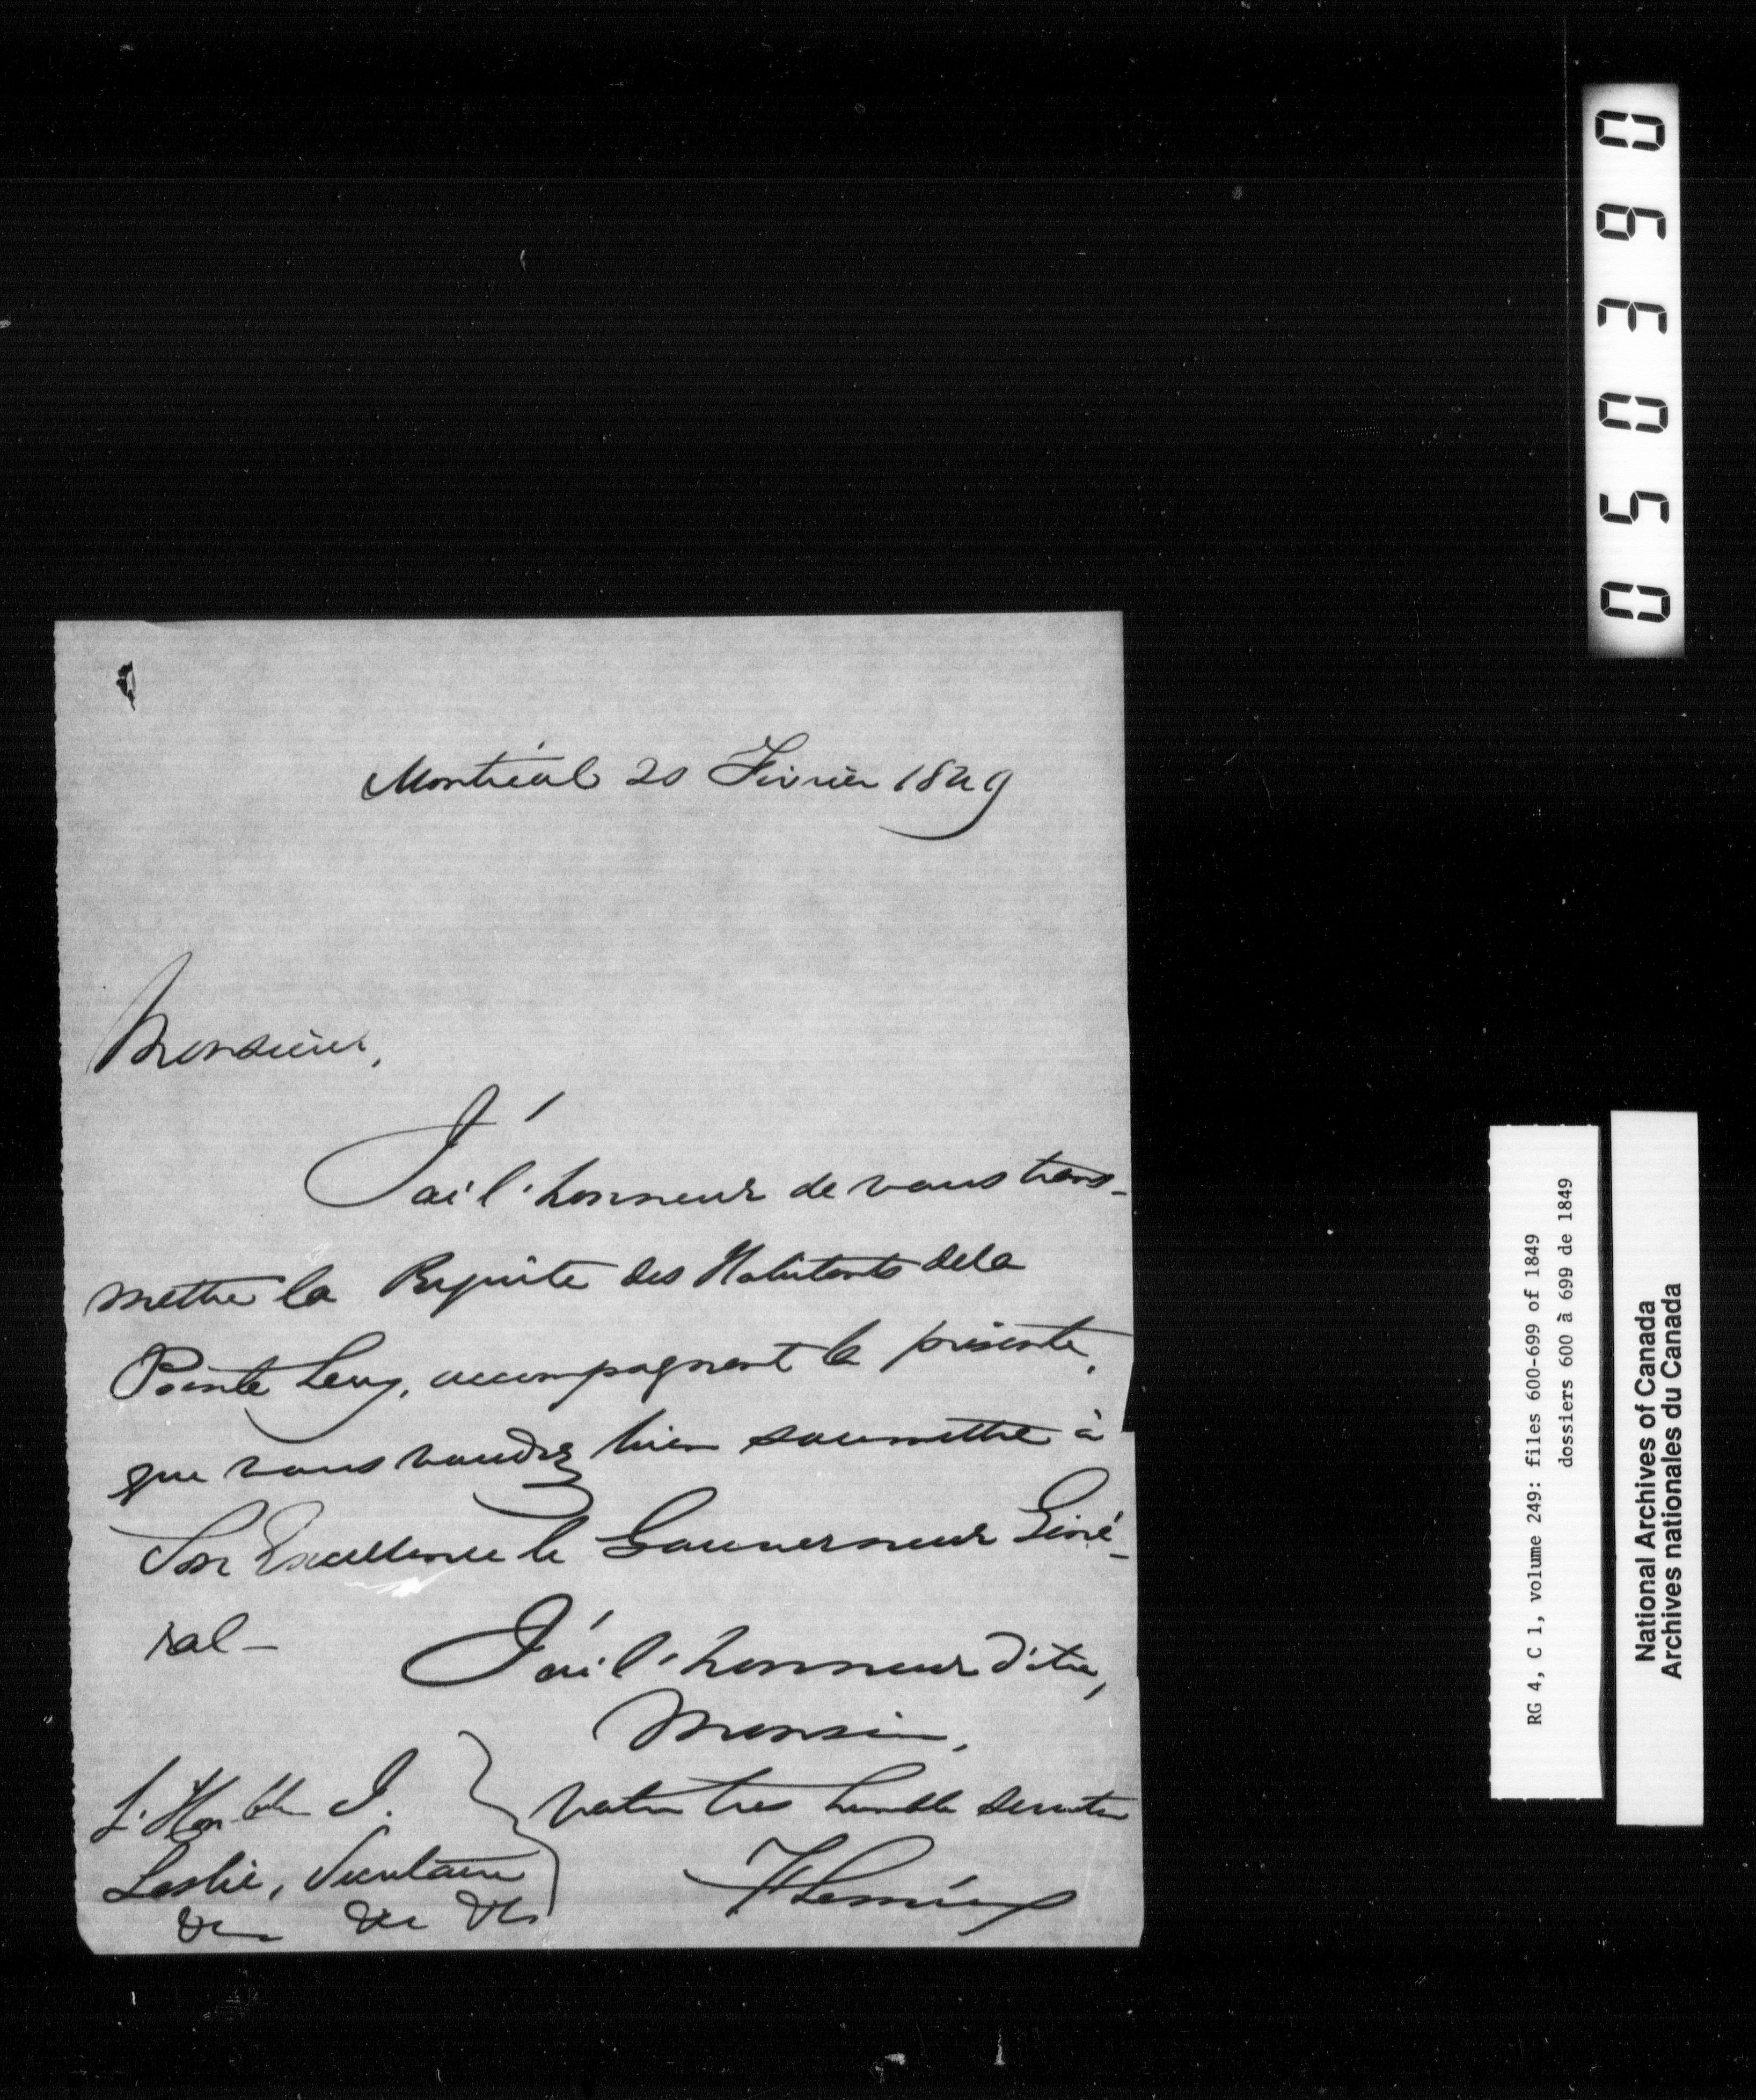 Montréal 20 Février 1849
Monsieur,
J'ai l'honneur de vous trans-
mettre la Requête des Habitants dela
Pointe Levy, accompagnant la présente,
que vous voudrez bien soumettre à
Son Excellence le Gouverneur Géné-
ral -
J'ai l'honneur d'être,
Monsieur,
votre très humble serviteur
F Lemieux
L'Honble J.
Leslie, Secrétaire
&c &c &c
050390
RG 4, C 1, volume 249: files 600-699 of 1849
dossiers 600 à 699 de 1849
National Archives of Canada
Archives nationales du Canada